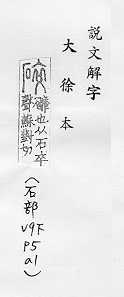 說文解字
大徐本
碎
䃺也从石卒
聲蘇對切
(石部
V9下
P5
a1)